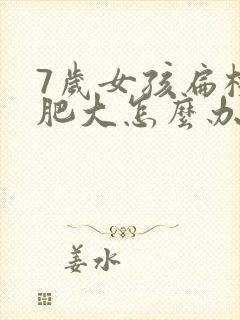 7歲女孩扁桃
肥大怎麼办
姜水